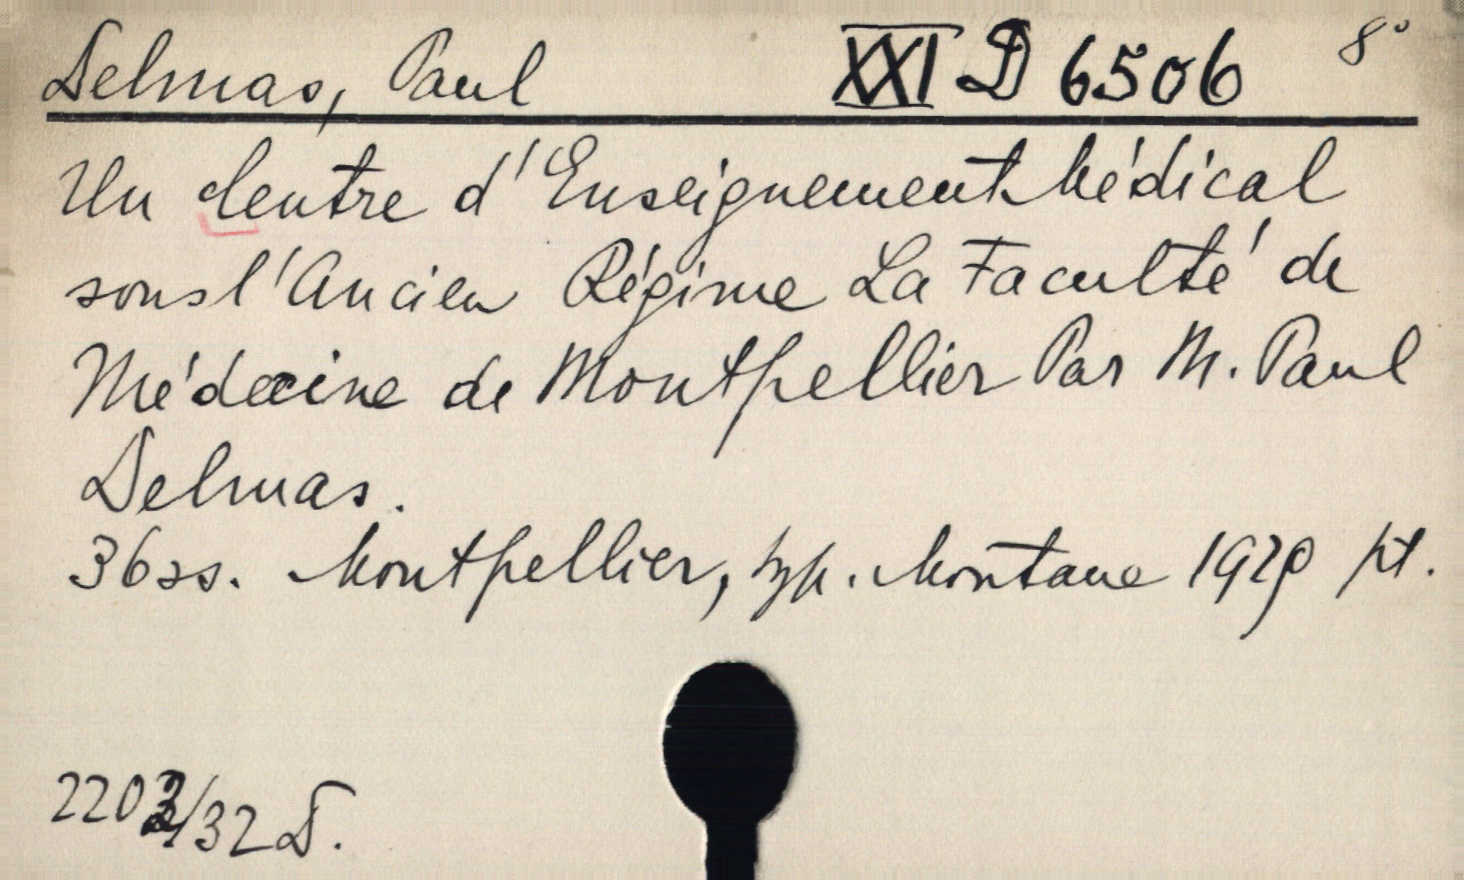 Delmas, Paul XXI D 6506 8°
Un Centre d'Enseignement Médical
sous l'Ancien Régime La Faculté de
Médecine de Montpellier Par M. Paul
Delmas.
36 ss. Montpellier, typ. Montane 1929 pt.
2203/32 D.